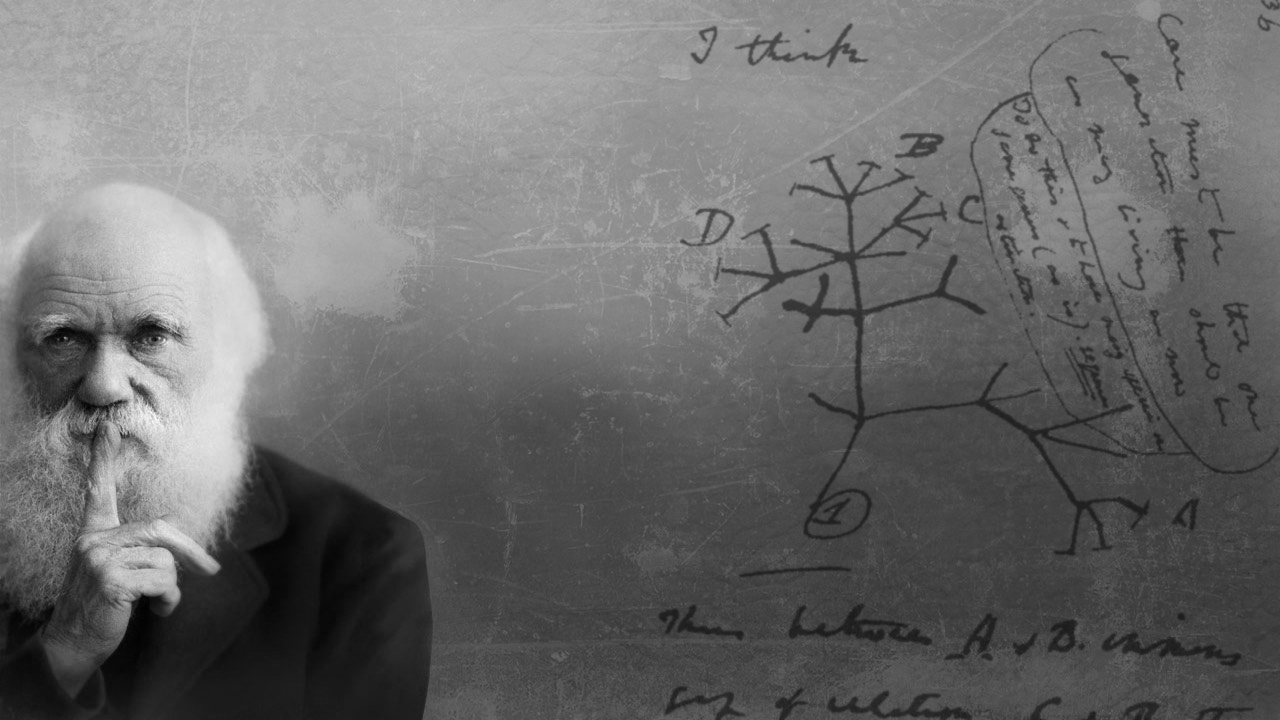 36
I think
Case must be that one
generation then should be
as many living as now
To do this & to have many species in
same genus (as is) requires
extinction.
B
C
D
A
1
Thus between A & B. immense
gap of relation C & B